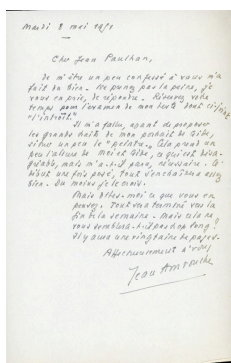 Mardi 8 mai 1951
Cher Jean Paulhan,
De m'être un peu confessé à vous m'a
fait du bien. Ne prenez pas la peine, je
vous en prie, de répondre. Réservez votre
temps pour l'examen de mon texte dont ci-joint
l'introït
Il m'a fallu, avant de proposer
les grands traits de mon portrait de Gide,
situer un peu le "peintre". Cela prend un
peu l'allure de moi et Gide, ce qui est
mais m'a paru nécessaire. Ce
début une fois posé, tout s'enchaînera assez
bien. Du moins je le crois.
Mais dites-moi ce que vous en
pensez. Tout sera terminé vers la
fin de la semaine. Mais cela ne
vous semblera-t-il pas trop long ?
Il y aura une vingtaine de pages.
Affectueusement à vous,
Jean Amrouche